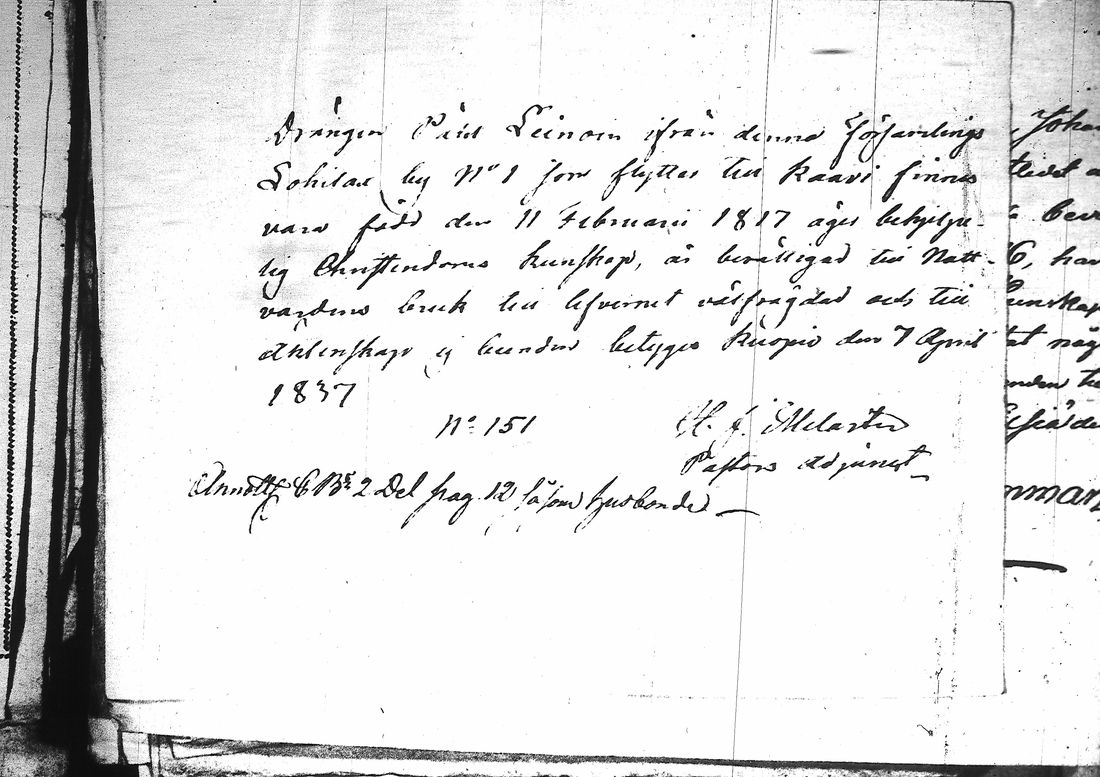 Drängen Påhl Leinoin ifrån denna Församlings
Lohilax by No 1 som flyttar till Kaavi finnes
vara född den 11 Februarii 1817 äger behjelpe-
lig Christendoms kunskap, är berättigad till Natt-
vardens bruk till lefvernet välfrägdad och till
äktenskap ej bunden betyges Kuopio den 7 April
1837
No 151
H. J. Melartin
Pastors Adjunct
Annott C Br 2 Del pag. 12 såsom husbonde
Joha
6, har
kunskap
någ